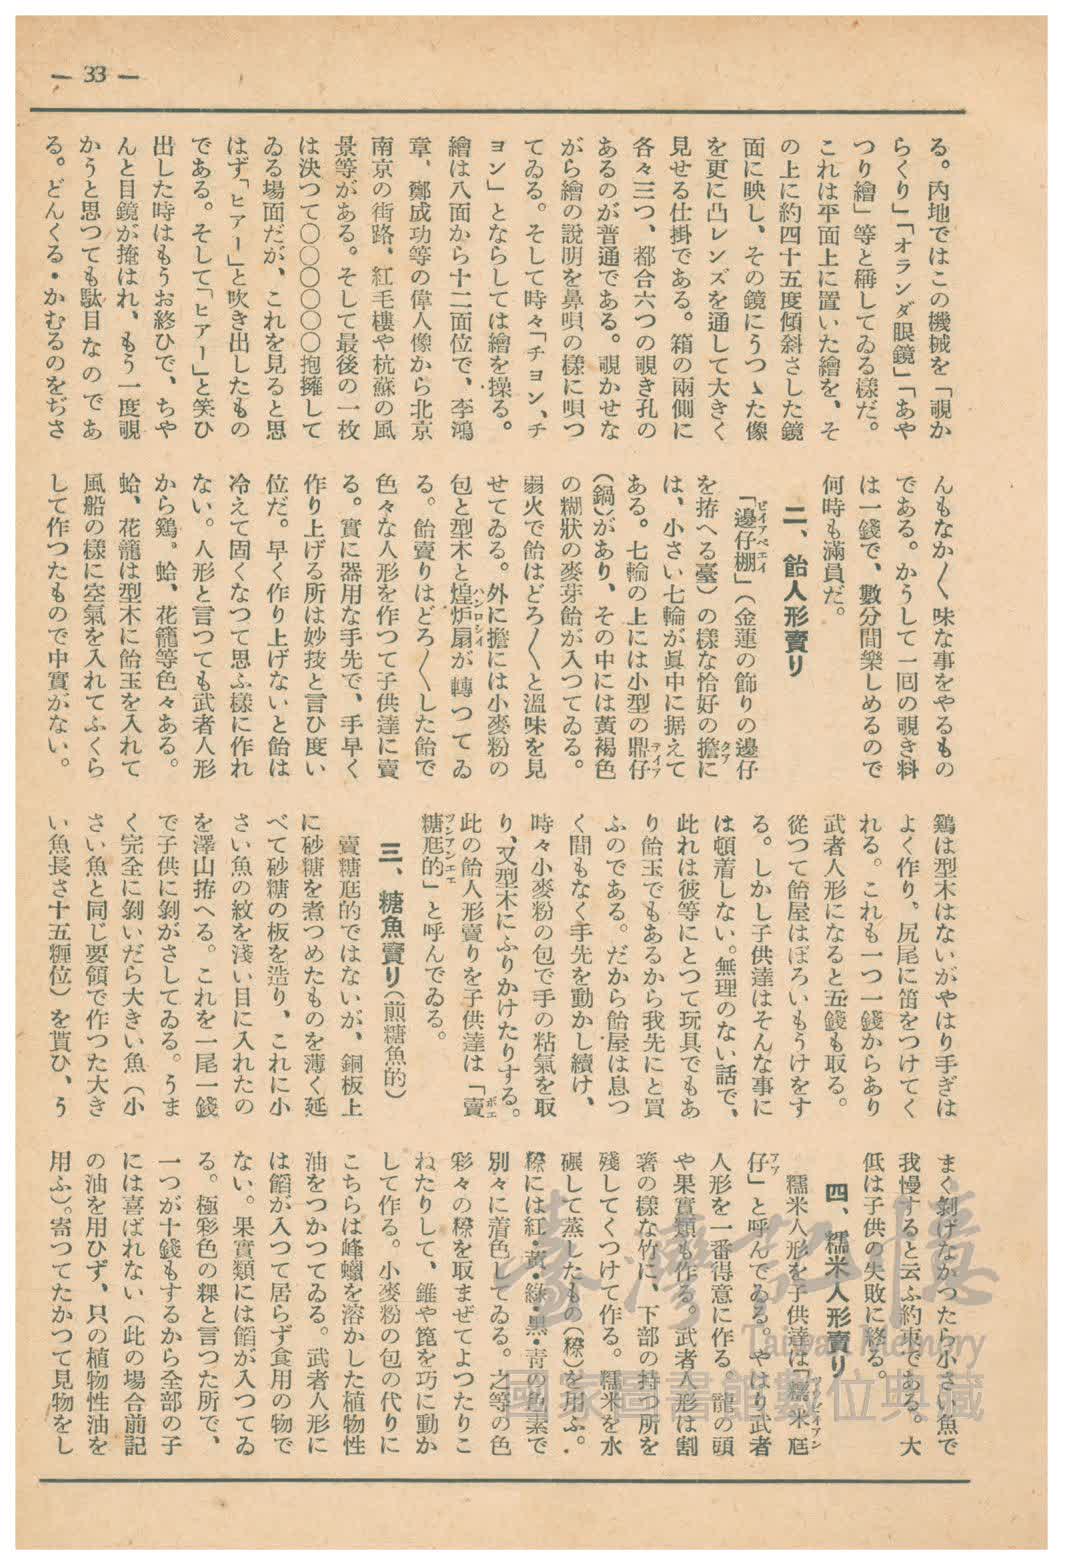 — 33 —
る。内地ではこの機械を「覗か
らくり」「オランダ眼鏡」「あや
つり繪」等と稱してゐる樣だ。
これは平面上に置いた繪を、そ
の上に約四十五度傾斜さした鏡
面に映し、その鏡にうつゝた像
を更に凸レンズを通して大きく
見せる仕掛である。箱の兩側に
各々三つ、都合六つの覗き孔の
あるのが普通である。覗かせな
がら繪の說明を鼻唄の樣に唄つ
てゐる。そして時々「チヨン、チ
ヨン」とならしては繪を操る。
繪は八面から十二面位で、李鴻
章、鄭成功等の偉人像から北京
南京の街路、紅毛樓や杭蘇の風
景等がある。そして最後の一枚
は決つて〇〇〇〇〇〇抱擁して
ゐる場面だが、これを見ると思
はず「ヒアー」と吹き出したもの
である。そして「ヒアー」と笑ひ
出した時はもうお終ひで、ちや
んと目鏡が掩はれ、もう一度覗
かうと思つても駄目なのであ
る。どんくる・かむるのをぢさ
んもなか〳〵味な事をやるもの
である。かうして一囘の覗き料
は一錢で、數分間樂しめるので
何時も滿員だ。
二、飴人形賣り
「邊仔棚」(金蓮の飾りの邊仔
を拵へる臺)の樣な恰好の擔に
は、小さい七輪が眞中に据えて
ある。七輪の上には小型の鼎仔
(鍋)があり、その中には黃褐色
の糊狀の麥芽飴が入つてゐる。
弱火で飴はどろ〳〵と溫味を見
せてゐる。外に擔には小麥粉の
包と型木と煌炉扇が轉つてゐ
る。飴賣りはどろ〳〵した飴で
色々な人形を作つて子供達に賣
る。實に器用な手先で、手早く
作り上げる所は妙技と言ひ度い
位だ。早く作り上げないと飴は
冷えて固くなつて思ふ樣に作れ
ない。人形と言つても武者人形
から鷄。蛤、花籠等色々ある。
蛤、花籠は型木に飴玉を入れて
風船の樣に空氣を入れてふくら
して作つたもので中實がない。
鷄は型木はないがやはり手ぎは
よく作り、尻尾に笛をつけてく
れる。これも一つ一錢からあり
武者人形になると五錢も取る。
從つて飴屋はぼろいもうけをす
る。しかし子供達はそんな事に
は頓着しない。無理のない話で、
此れは彼等にとつて玩具でもあ
り飴玉でもあるから我先にと買
ふのである。だから飴屋は息つ
く間もなく手先を動かし續け、
時々小麥粉の包で手の粘氣を取
り、又型木にふりかけたりする。
此の飴人形賣りを子供達は「賣
糖尫的」と呼んでゐる。
三、糖魚賣り(煎糖魚的)
賣糖尫的ではないが、銅板上
に砂糖を煮つめたものを薄く延
べて砂糖の板を造り、これに小
さい魚の紋を淺い目に入れたの
を澤山拵へる。これを一尾一錢
で子供に剝がさしてゐる。うま
く完全に剝いだら大きい魚(小
さい魚と同じ要領で作つた大き
い魚長さ十五糎位)を貰ひ、う
まく剝げなかつたら小さい魚で
我慢すると云ふ約束である。大
低は子供の失敗に終る。
四、糯米人形賣り
糯米人形を子供達は「糯米尫
仔」と呼んでゐる。やはり武者
人形を一番得意に作る。龍の頭
や果實類も作る。武者人形は割
箸の樣な竹に、下部の持つ所を
殘してくつけて作る。糯米を水
碾して蒸したもの(糝)を用ふ。
糝には紅・黃・綠・黑・靑の色素で
別々に着色してゐる。之等の色
彩々の糝を取まぜてよつたりこ
ねたりして、錐や箆を巧に動か
して作る。小麥粉の包の代りに
こちらは峰蠟を溶かした植物性
油をつかつてゐる。武者人形に
は餡が入つて居らず食用の物で
ない。果實類には餡が入つてゐ
る。極彩色の粿と言つた所で、
一つが十錢もするから全部の子
には喜ばれない(此の場合前記
の油を用ひず、只の植物性油を
用ふ)。寄つてたかつて見物をし
臺灣記憶
Taiwan Memory
國家圖書館數位典藏